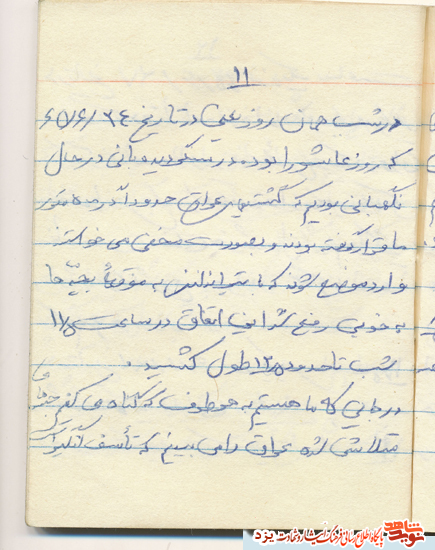 ۱۱
در شب همان روز یعنی در تاریخ ۲۴/۶/
که روز عاشورا بوده در سنگر دیده‌بانی در حال
نگهبانی بودیم که گشتیهای عراق حدوداً در متر
ما قرار گرفته بودند و بصورت مخفی می خواستند
وارد موضع شوند که با تیراندازی به موقع بچه ها
به خوبی رفع شد این اتفاق در ساعت
شب تا حدود ۱۲ طول کشید.
در جایی که ما هستیم به هر طرف که نگاه می کنم
متلاشی شده عراق را می بینم که تأسف انگیز
نوید شاهد
پایگاه اطلاع رسانی فرهنگ ایثار و شهادت یزد